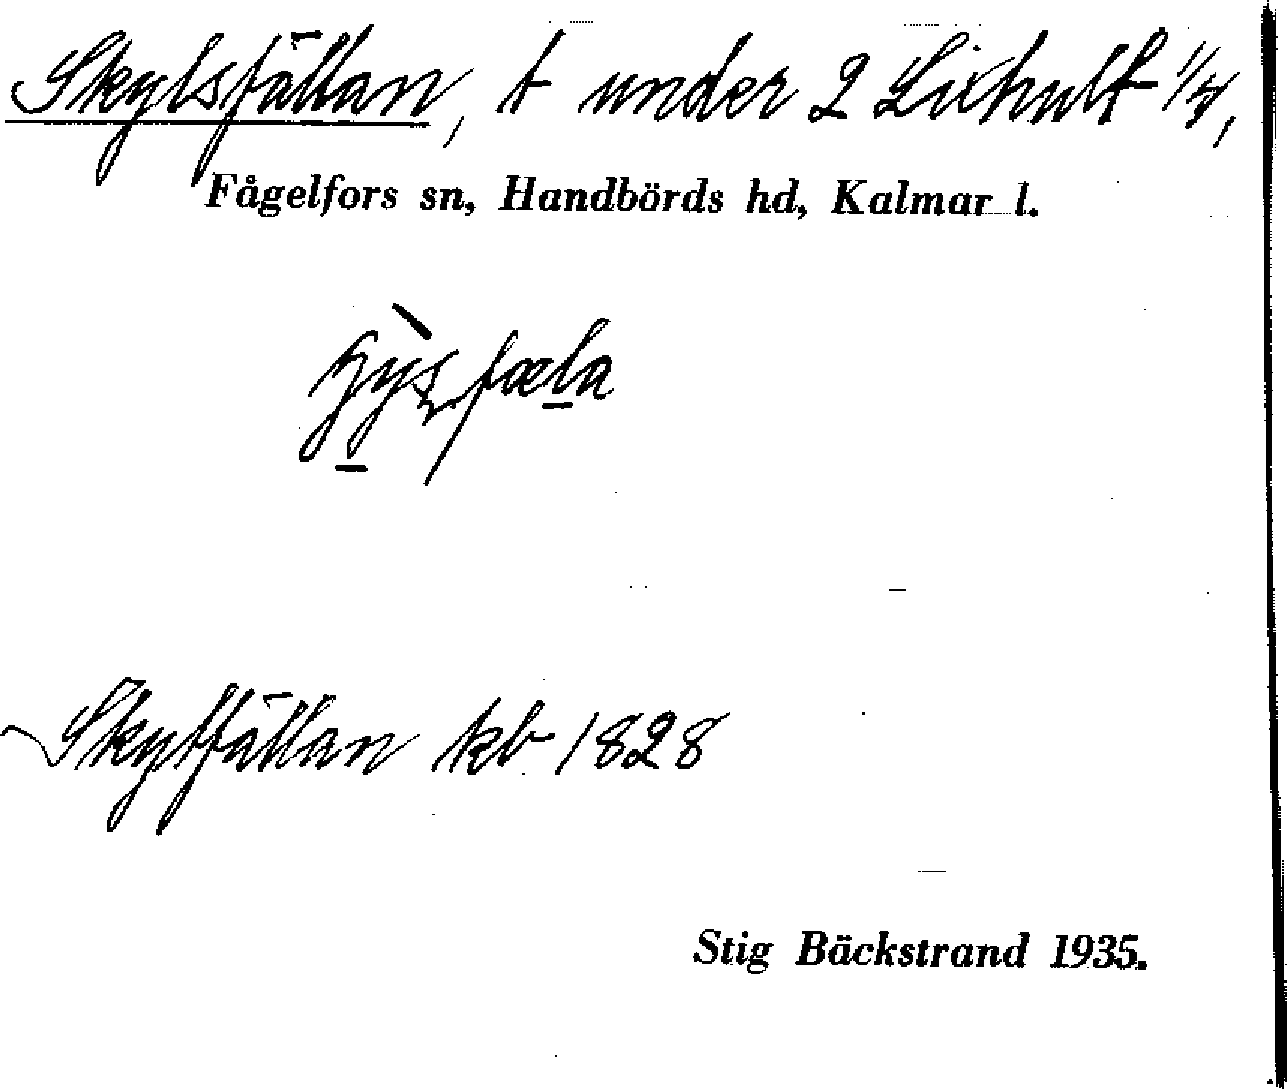 Skylsfällan, t under 2 Lixhult 1/4,
Fågelfors sn, Handbörds hd, Kalmar l.
Skylsfällan kb 1828
Stig Bäckstrand 1935.